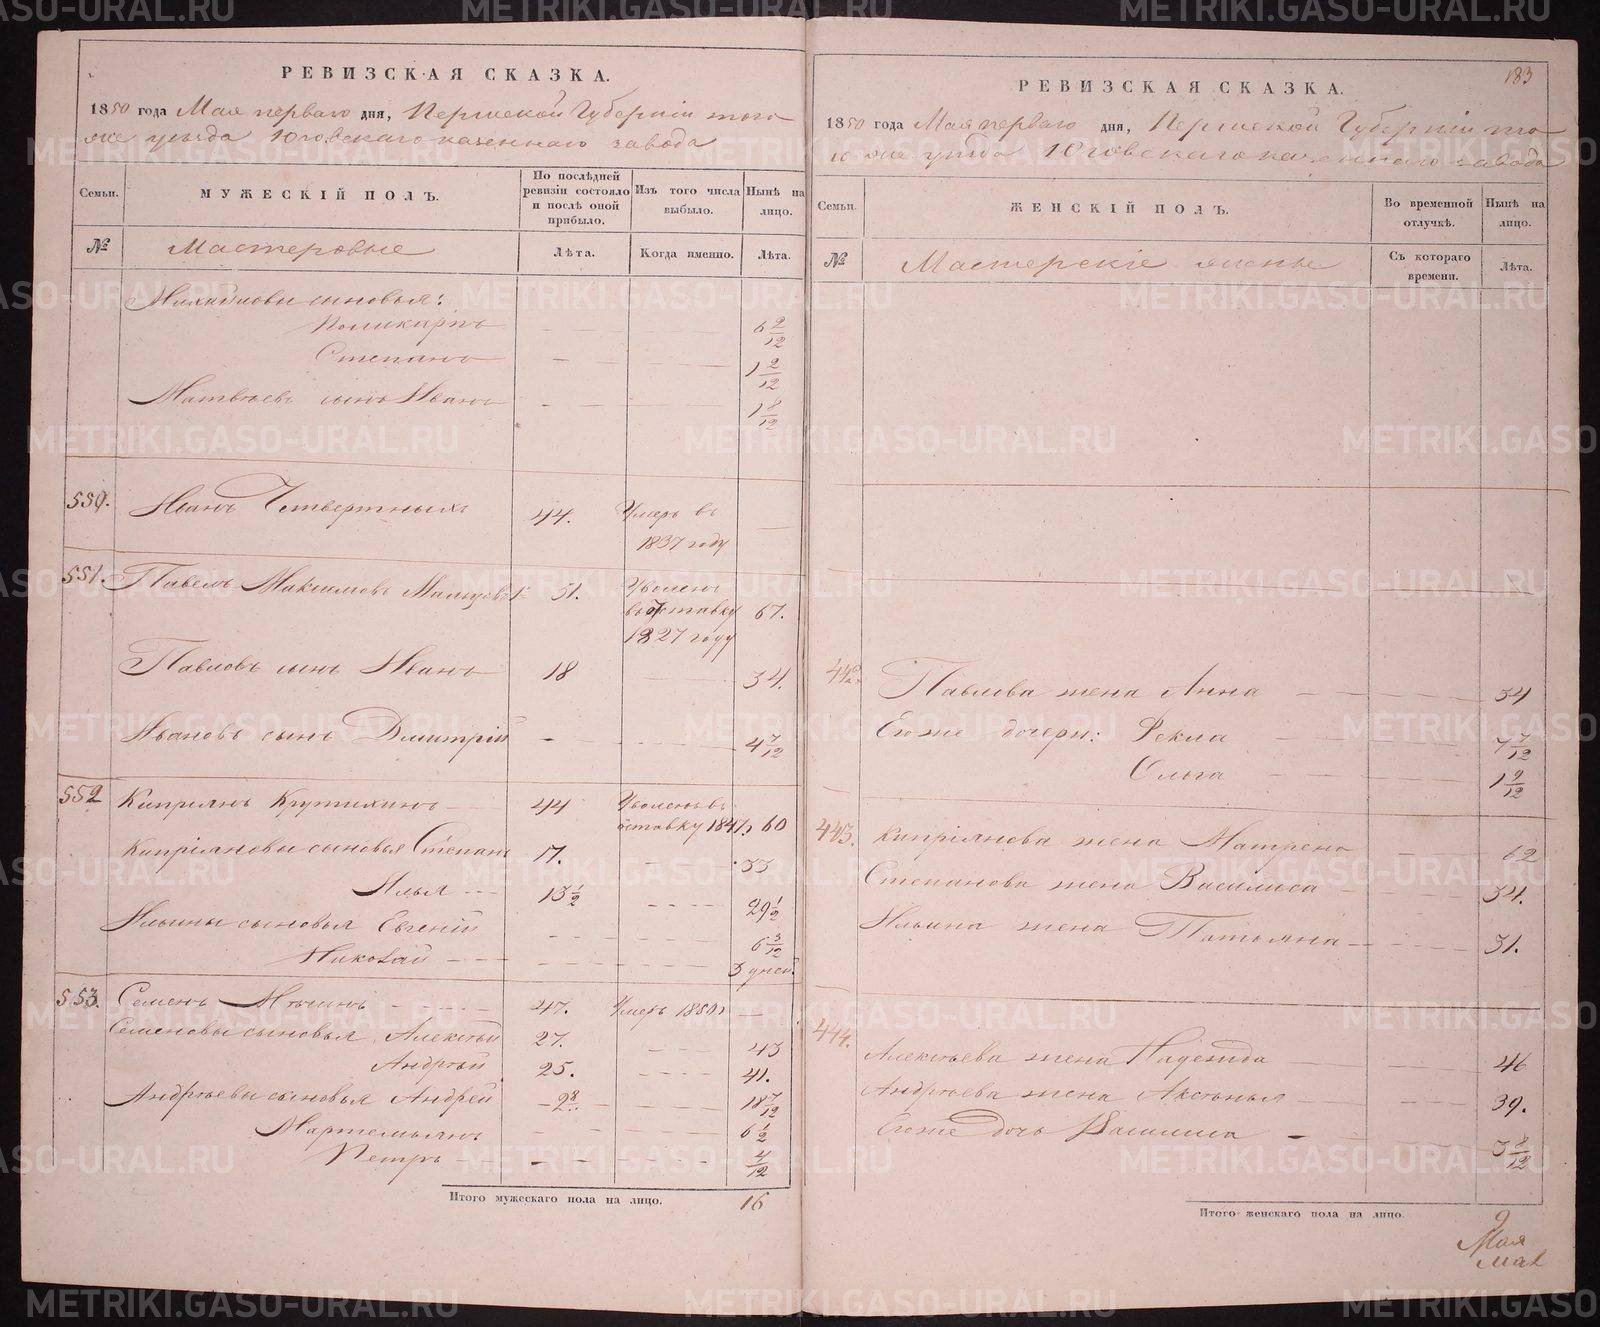 РЕВИЗСКАЯ СКАЗКА.
1850 года Мая перваго дня, Пермской Губернiи того
же уезда Юговскаго казеннаго завода
Семьи.
МУЖЕСКIЙ ПОЛЪ.
По послѣдней ревизiи состояло и послѣ оной прибыло.
Изъ того числа выбыло.
Нынѣ на лицо.
№
Мастеровые
Лѣта.
Когда именно.
Лѣта.
Михайловы сыновья:
Поликарпъ — — 6 2/12
Степанъ — — 1 2/12
Матвѣевъ сынъ Иванъ — — 1 8/12
550. Иванъ Четвертныхъ 44. Умеръ въ 1837 году —
551. Павелъ Максимовъ Мальцовъ 51. Уволенъ в отставку 1827 году 67.
Павловъ сынъ Иванъ 18 — 34.
Ивановъ сынъ Дмитрiй — — 4 7/12
552 Кипрiянъ Крутихинъ — 44 Уволенъ в отставку 1847 60
Кипрiяновы сыновья Степанъ 17. — 33
Илья — 13 1/2 — 29 1/2
Ильины сыновья Евгенiй — — 6 3/12
Николай — — 3 дней
553. Семенъ 47. Умеръ 1850 —
Семеновы сыновья Алексѣй 27. — 43
Андрѣй 25. — 41.
Андрѣевы сыновья Андрей — 2 8 — 18 7/12
Мартемьянъ — — 6 1/2
Петръ — — 4/12
Итого мужескаго пола на лицо. 16
183
РЕВИЗСКАЯ СКАЗКА.
1850 года Мая перваго дня, Пермской Губернiи то
го же уезда Юговскаго казеннаго завода
Семьи.
ЖЕНСКIЙ ПОЛЪ.
Во временной отлучкѣ.
Нынѣ на лицо.
№
Мастерскiе жены
Съ котораго времени.
Лѣта.
442. Павлова жена Анна — 34
Егоже дочери: Фекла — 7 7/12
Ольга — 1 9/12
443. Кипрiянова жена Матрена — 62
Степанова жена Василиса — 34.
Ильина жена Татьяна — 31.
444. Алексѣева жена Надежда — 46
Андрѣева жена Аксенья — 39.
Егоже дочь Василиса — 3 8/12
Итого женскаго пола на лицо.
9
METRIKI.GASO-URAL.RU